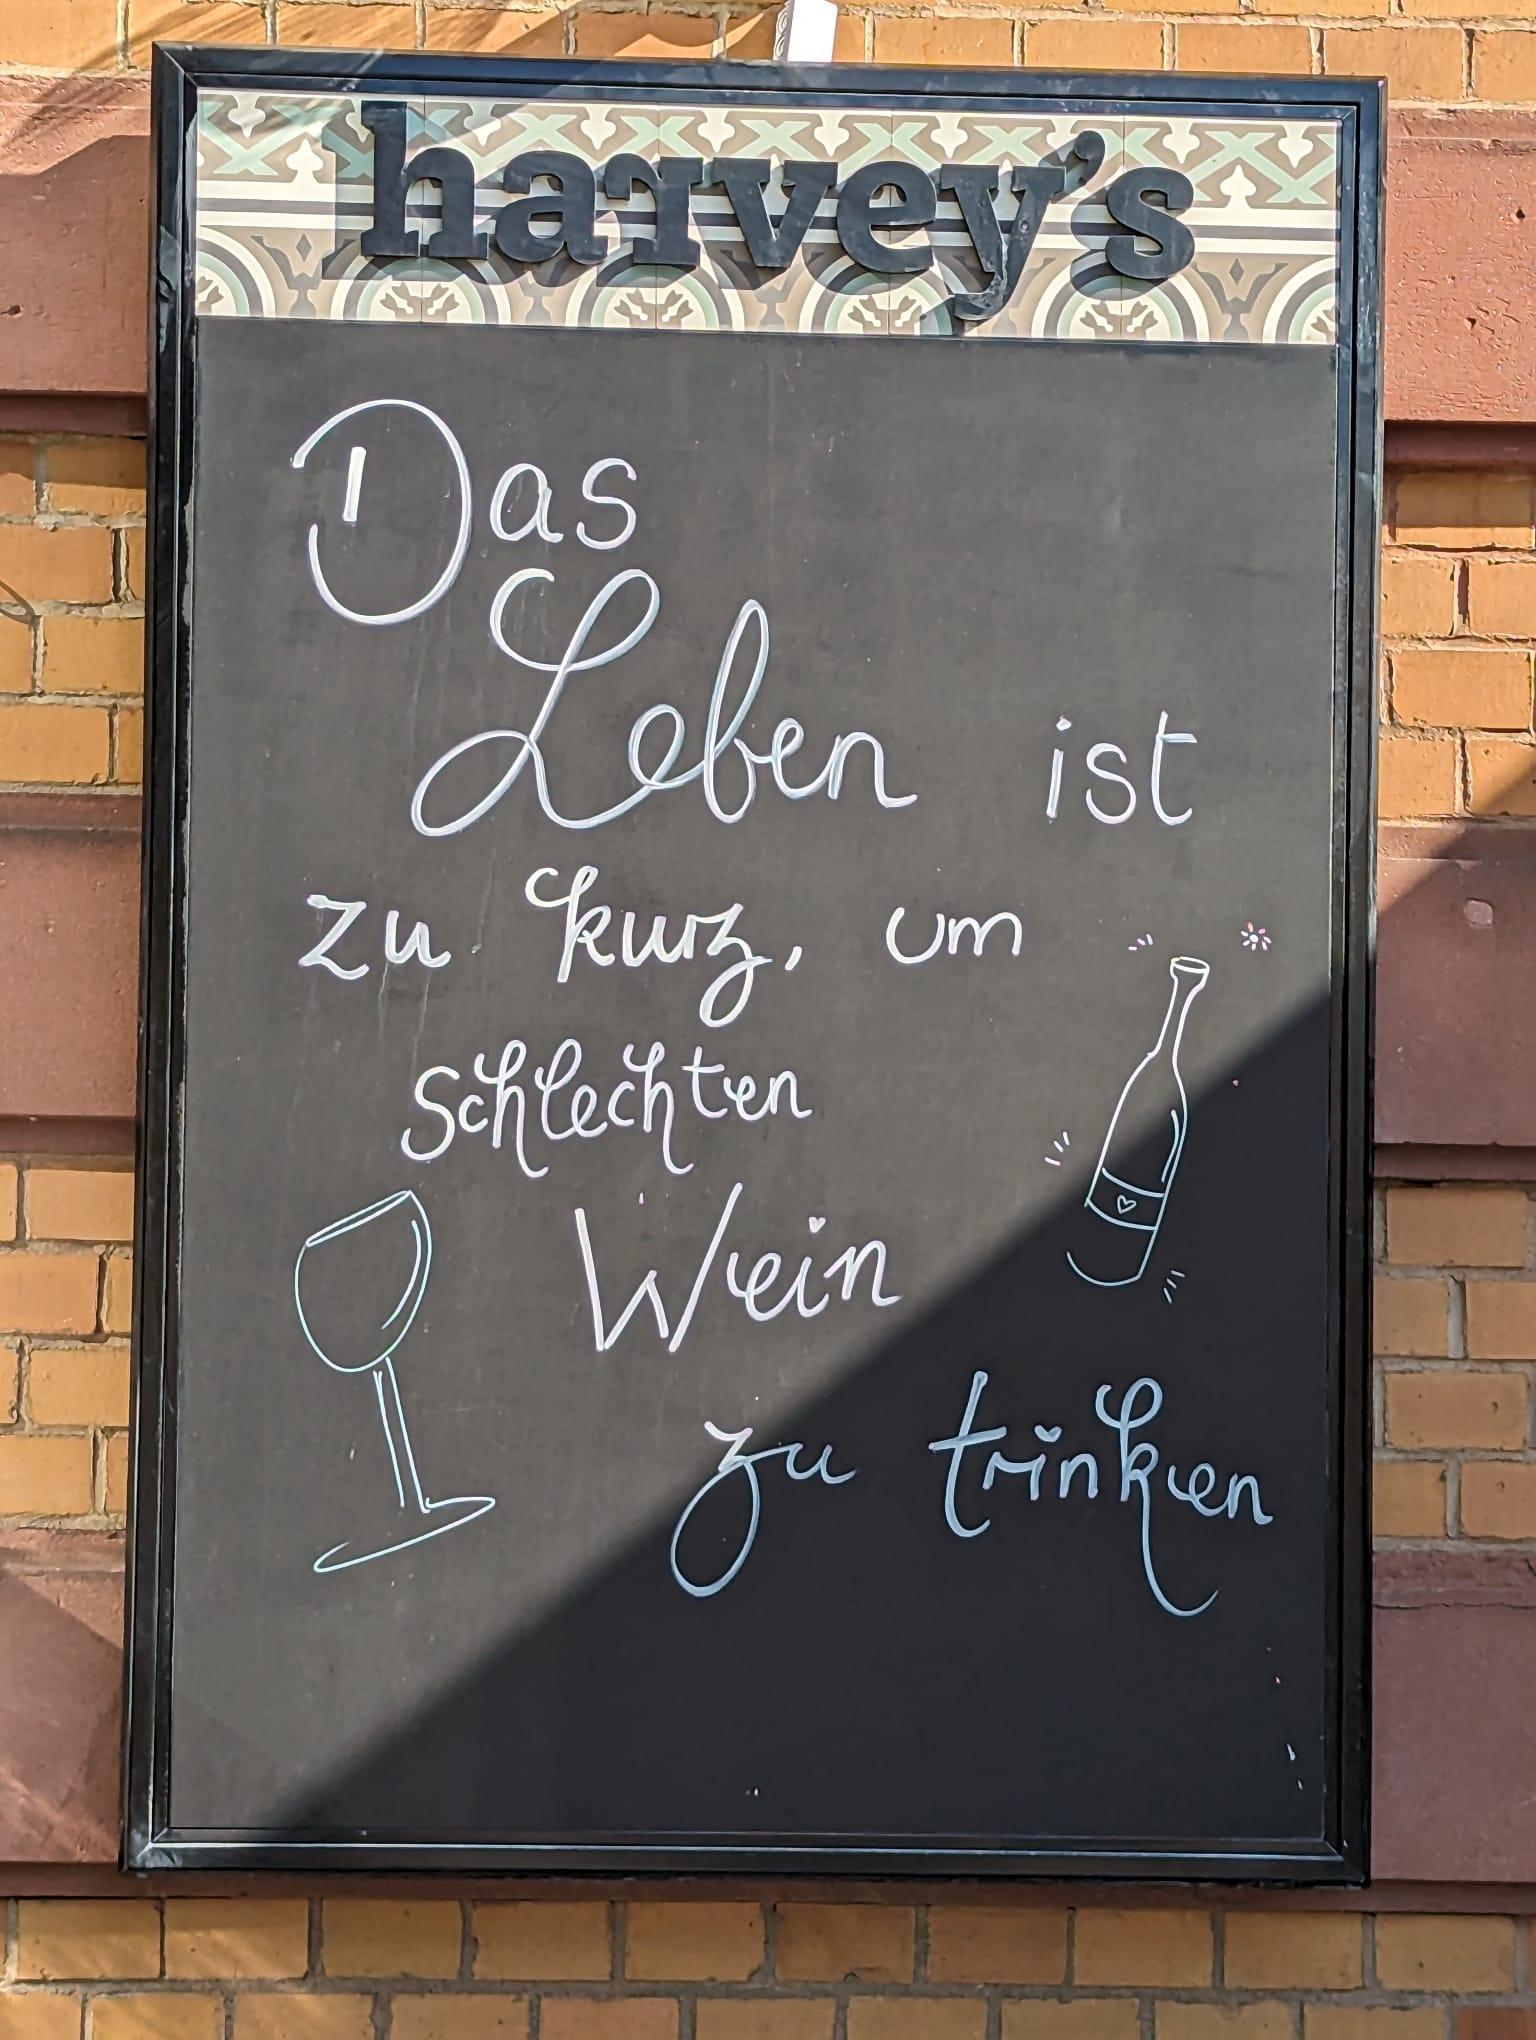 harvey's
Das
Leben ist
zu kurz, um
schlechten
Wein
zu trinken